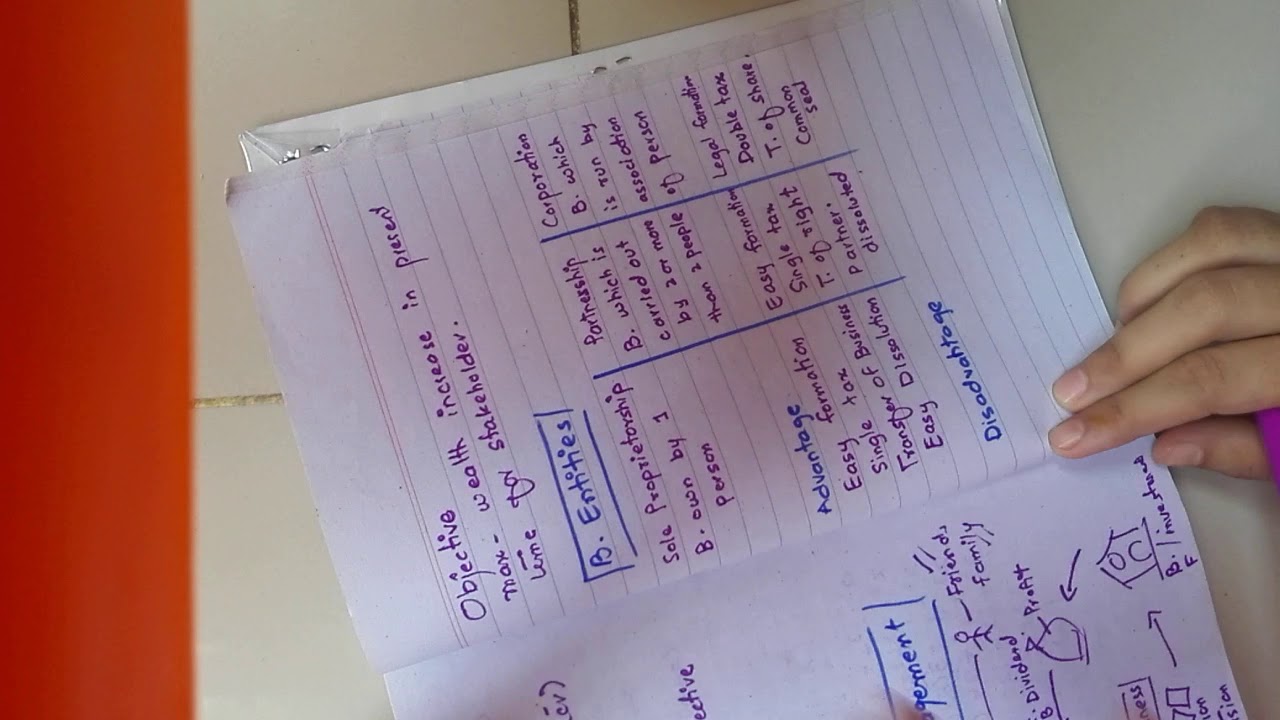 Objective
max- wealth increase in present
time for stakeholder.
B. Entities
Sole Proprietorship
B. own by 1
person
Partnership
B. which is
carried out
by 2 or more
than 2 people
Corporation
B. which
is run by
association
of person
Advantage
Easy formation
Single tax
Transfer of Business
Easy Dissolution
Easy formation
Single tax
T. of right
Partner.
dissoluted.
Legal formation
Double tax
T. of share.
Common
seal
Disadvantage
ective
gement
Friends
family
Dividend
Profit
B.
F
ness
on
sion